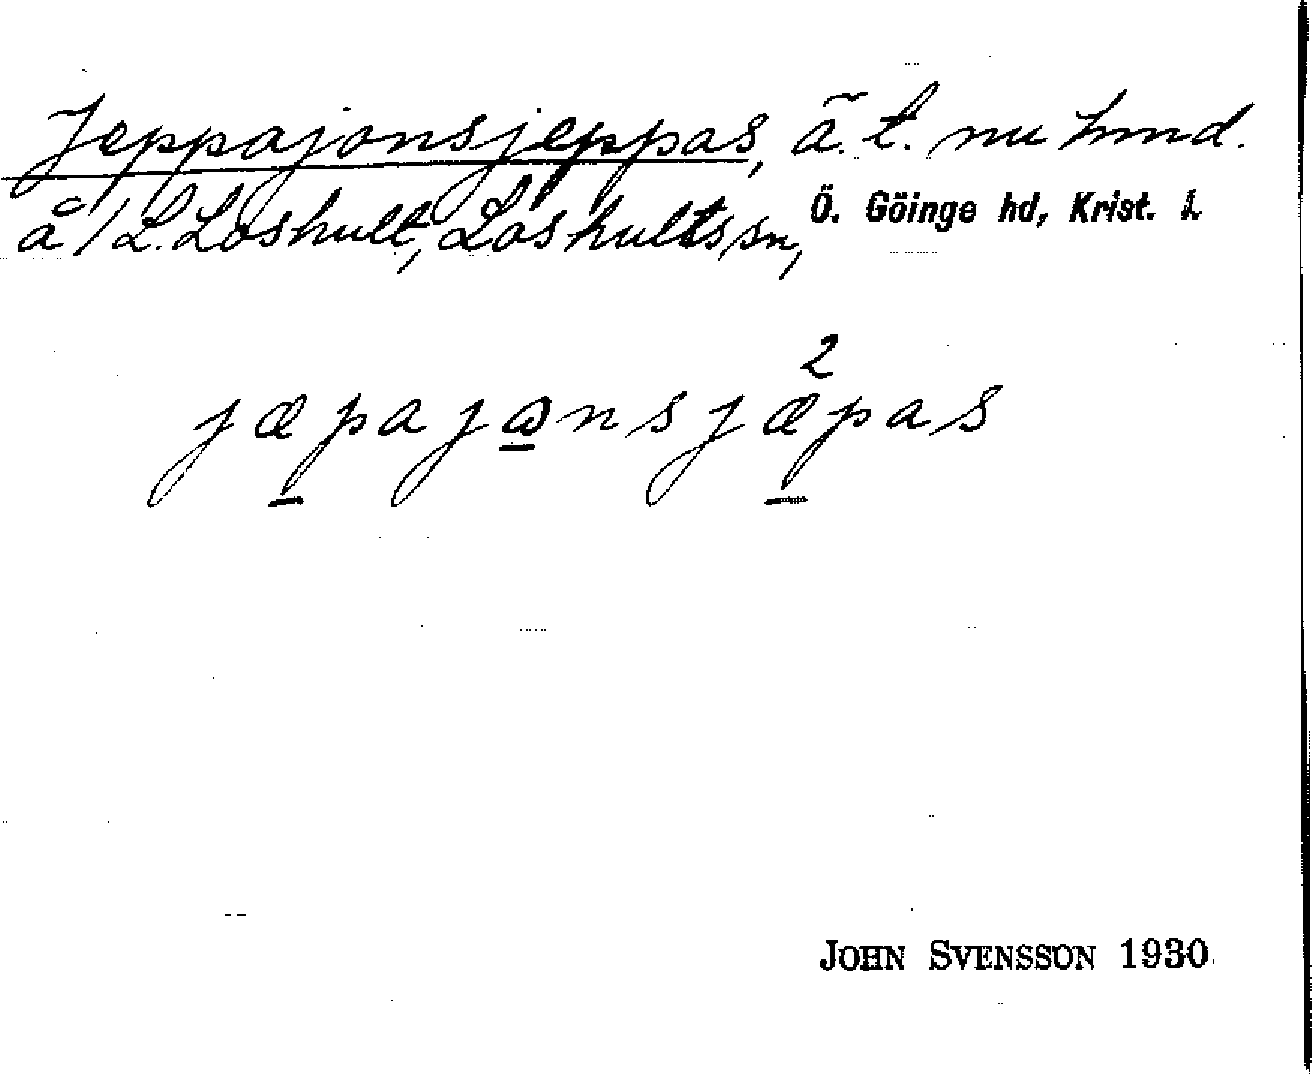 Jeppajonsjeppas, ä. t. nu hmd.
å /L. Loshult, Loshults sn, Ö. Göinge hd, Krist. l.
2
jæpajɷnsjæpas
JOHN SVENSSON 1930